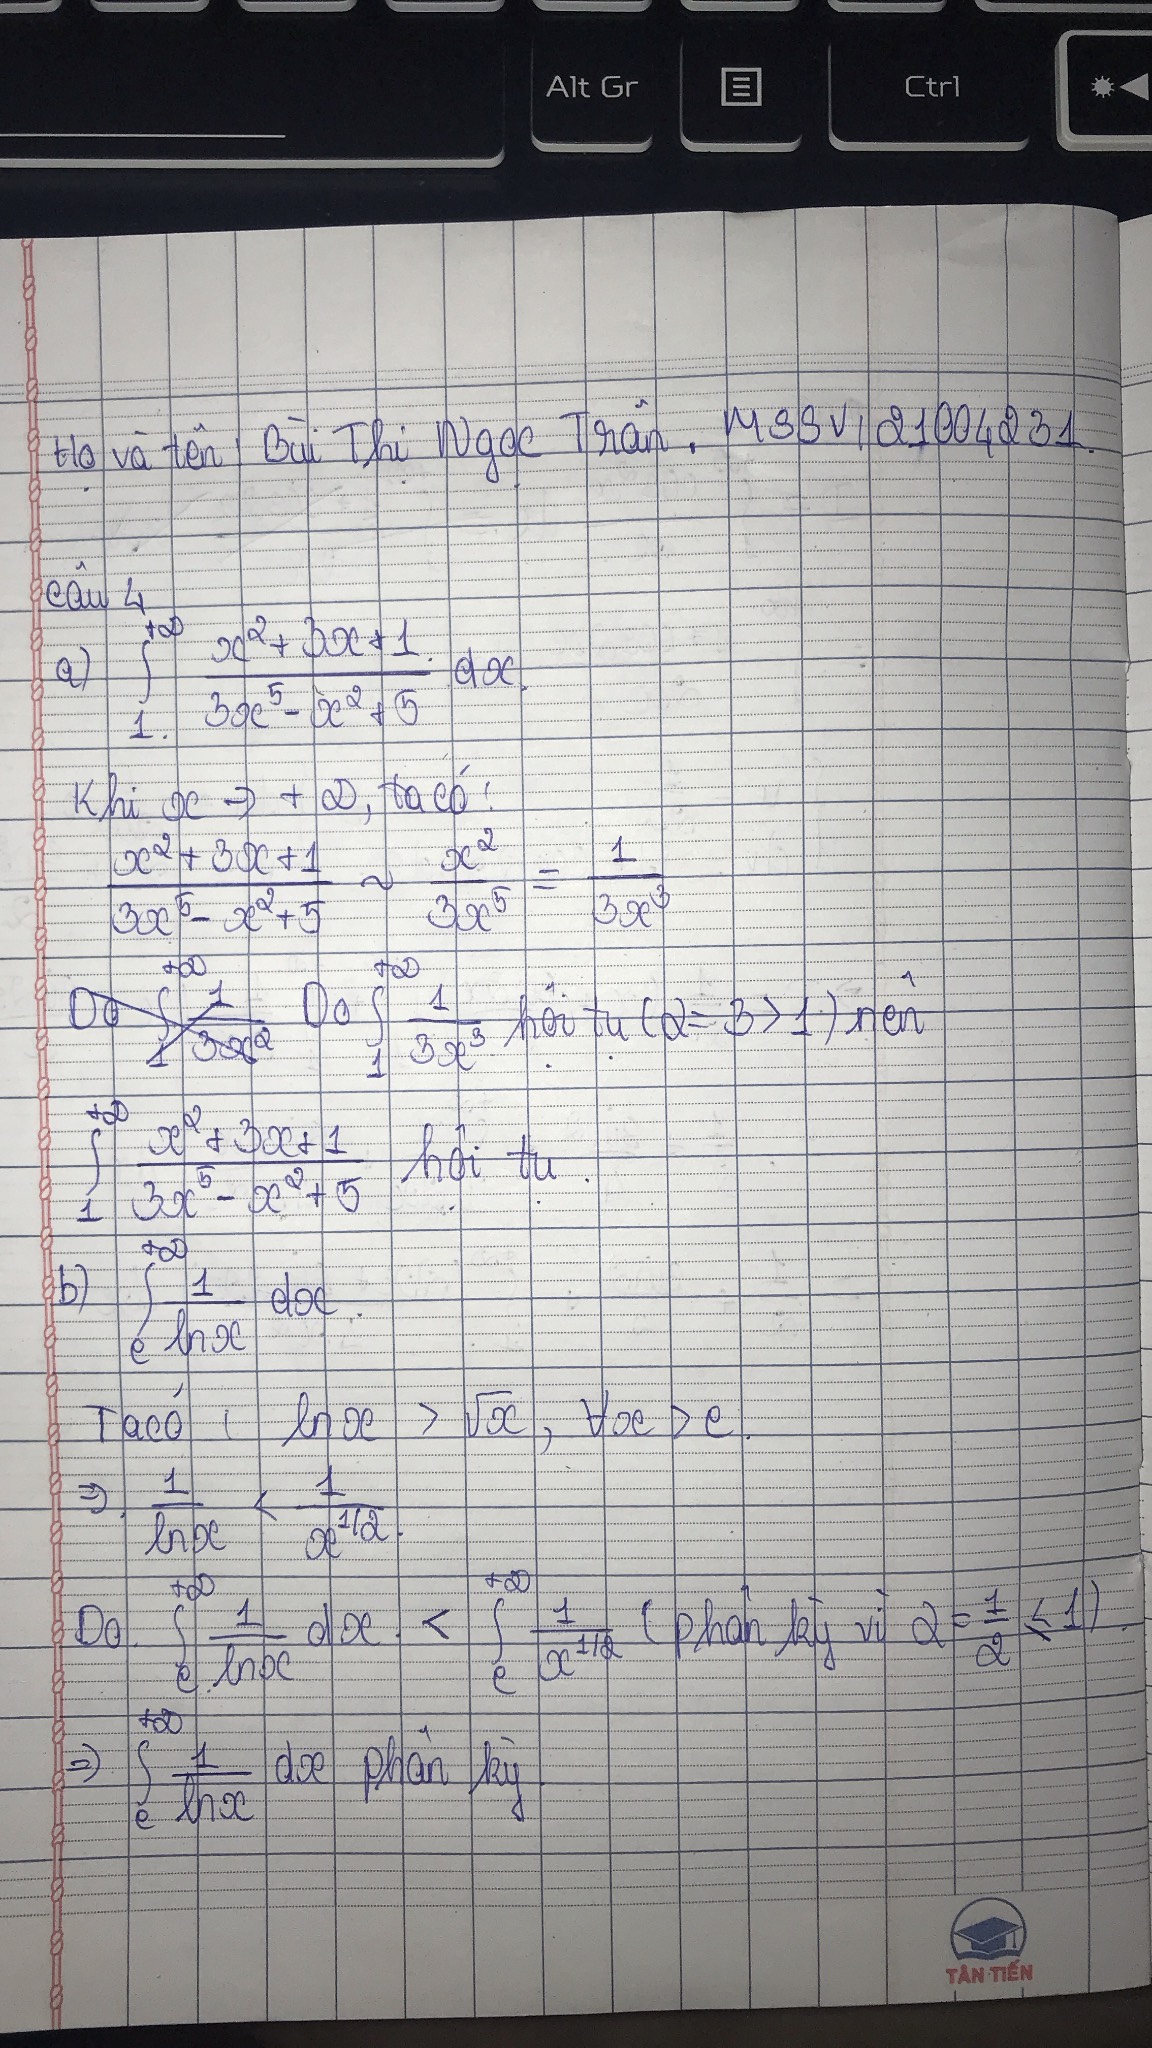 Alt Gr
Ctrl
Họ và tên: Bùi Thị Ngọc Trân. MSSV: 21004231.
Câu 4
a) ∫₁^{+∞} (x²+3x+1)/(3x⁵-x²+5) dx.
Khi x → +∞, ta có:
(x²+3x+1)/(3x⁵-x²+5) ~ x²/(3x⁵) = 1/(3x³)
Do ∫₁^{+∞} 1/(3x²) Do ∫₁^{+∞} 1/(3x³) hội tụ (α=3>1) nên
∫₁^{+∞} (x²+3x+1)/(3x⁵-x²+5) hội tụ.
b) ∫ₑ^{+∞} 1/lnx dx.
Ta có: lnx > √x, ∀x > e.
⇒ 1/lnx < 1/x^{1/2}.
Do ∫ₑ^{+∞} 1/lnx dx < ∫ₑ^{+∞} 1/x^{1/2} (phân kỳ vì α = 1/2 ≤ 1).
⇒ ∫ₑ^{+∞} 1/lnx dx phân kỳ.
TÂN TIẾN